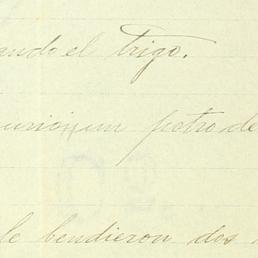 ando el trigo.
un potro de
le bendieron dos